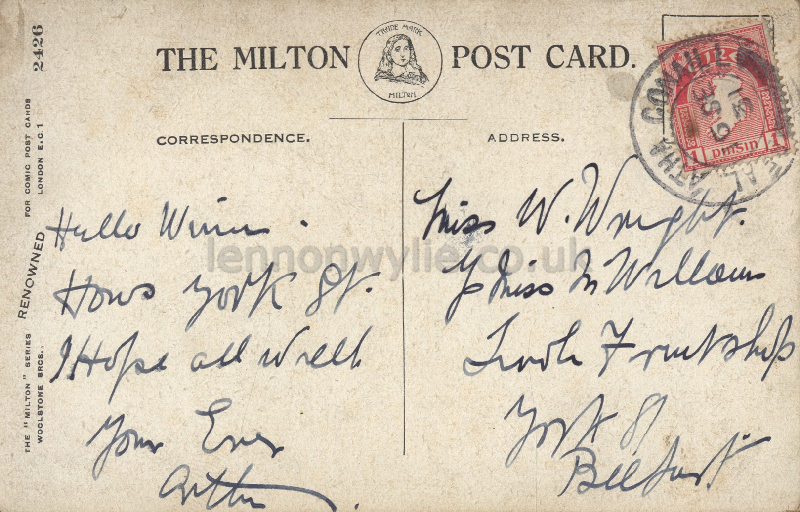 THE MILTON POST CARD.
TRADE MARK
MILTON
CORRESPONDENCE.
ADDRESS.
2426
THE "MILTON" SERIES RENOWNED FOR COMIC POST CARDS
WOOLSTONE BROS., LONDON E.C.1
Hello Winnie.
Hows York St.
I Hope all Well
Your Ever
Arthur.
Miss W. Wright.
Miss M Williams
Fruitshop
York St
Belfast.
1 PINSIN 1
lennonwylie.co.uk